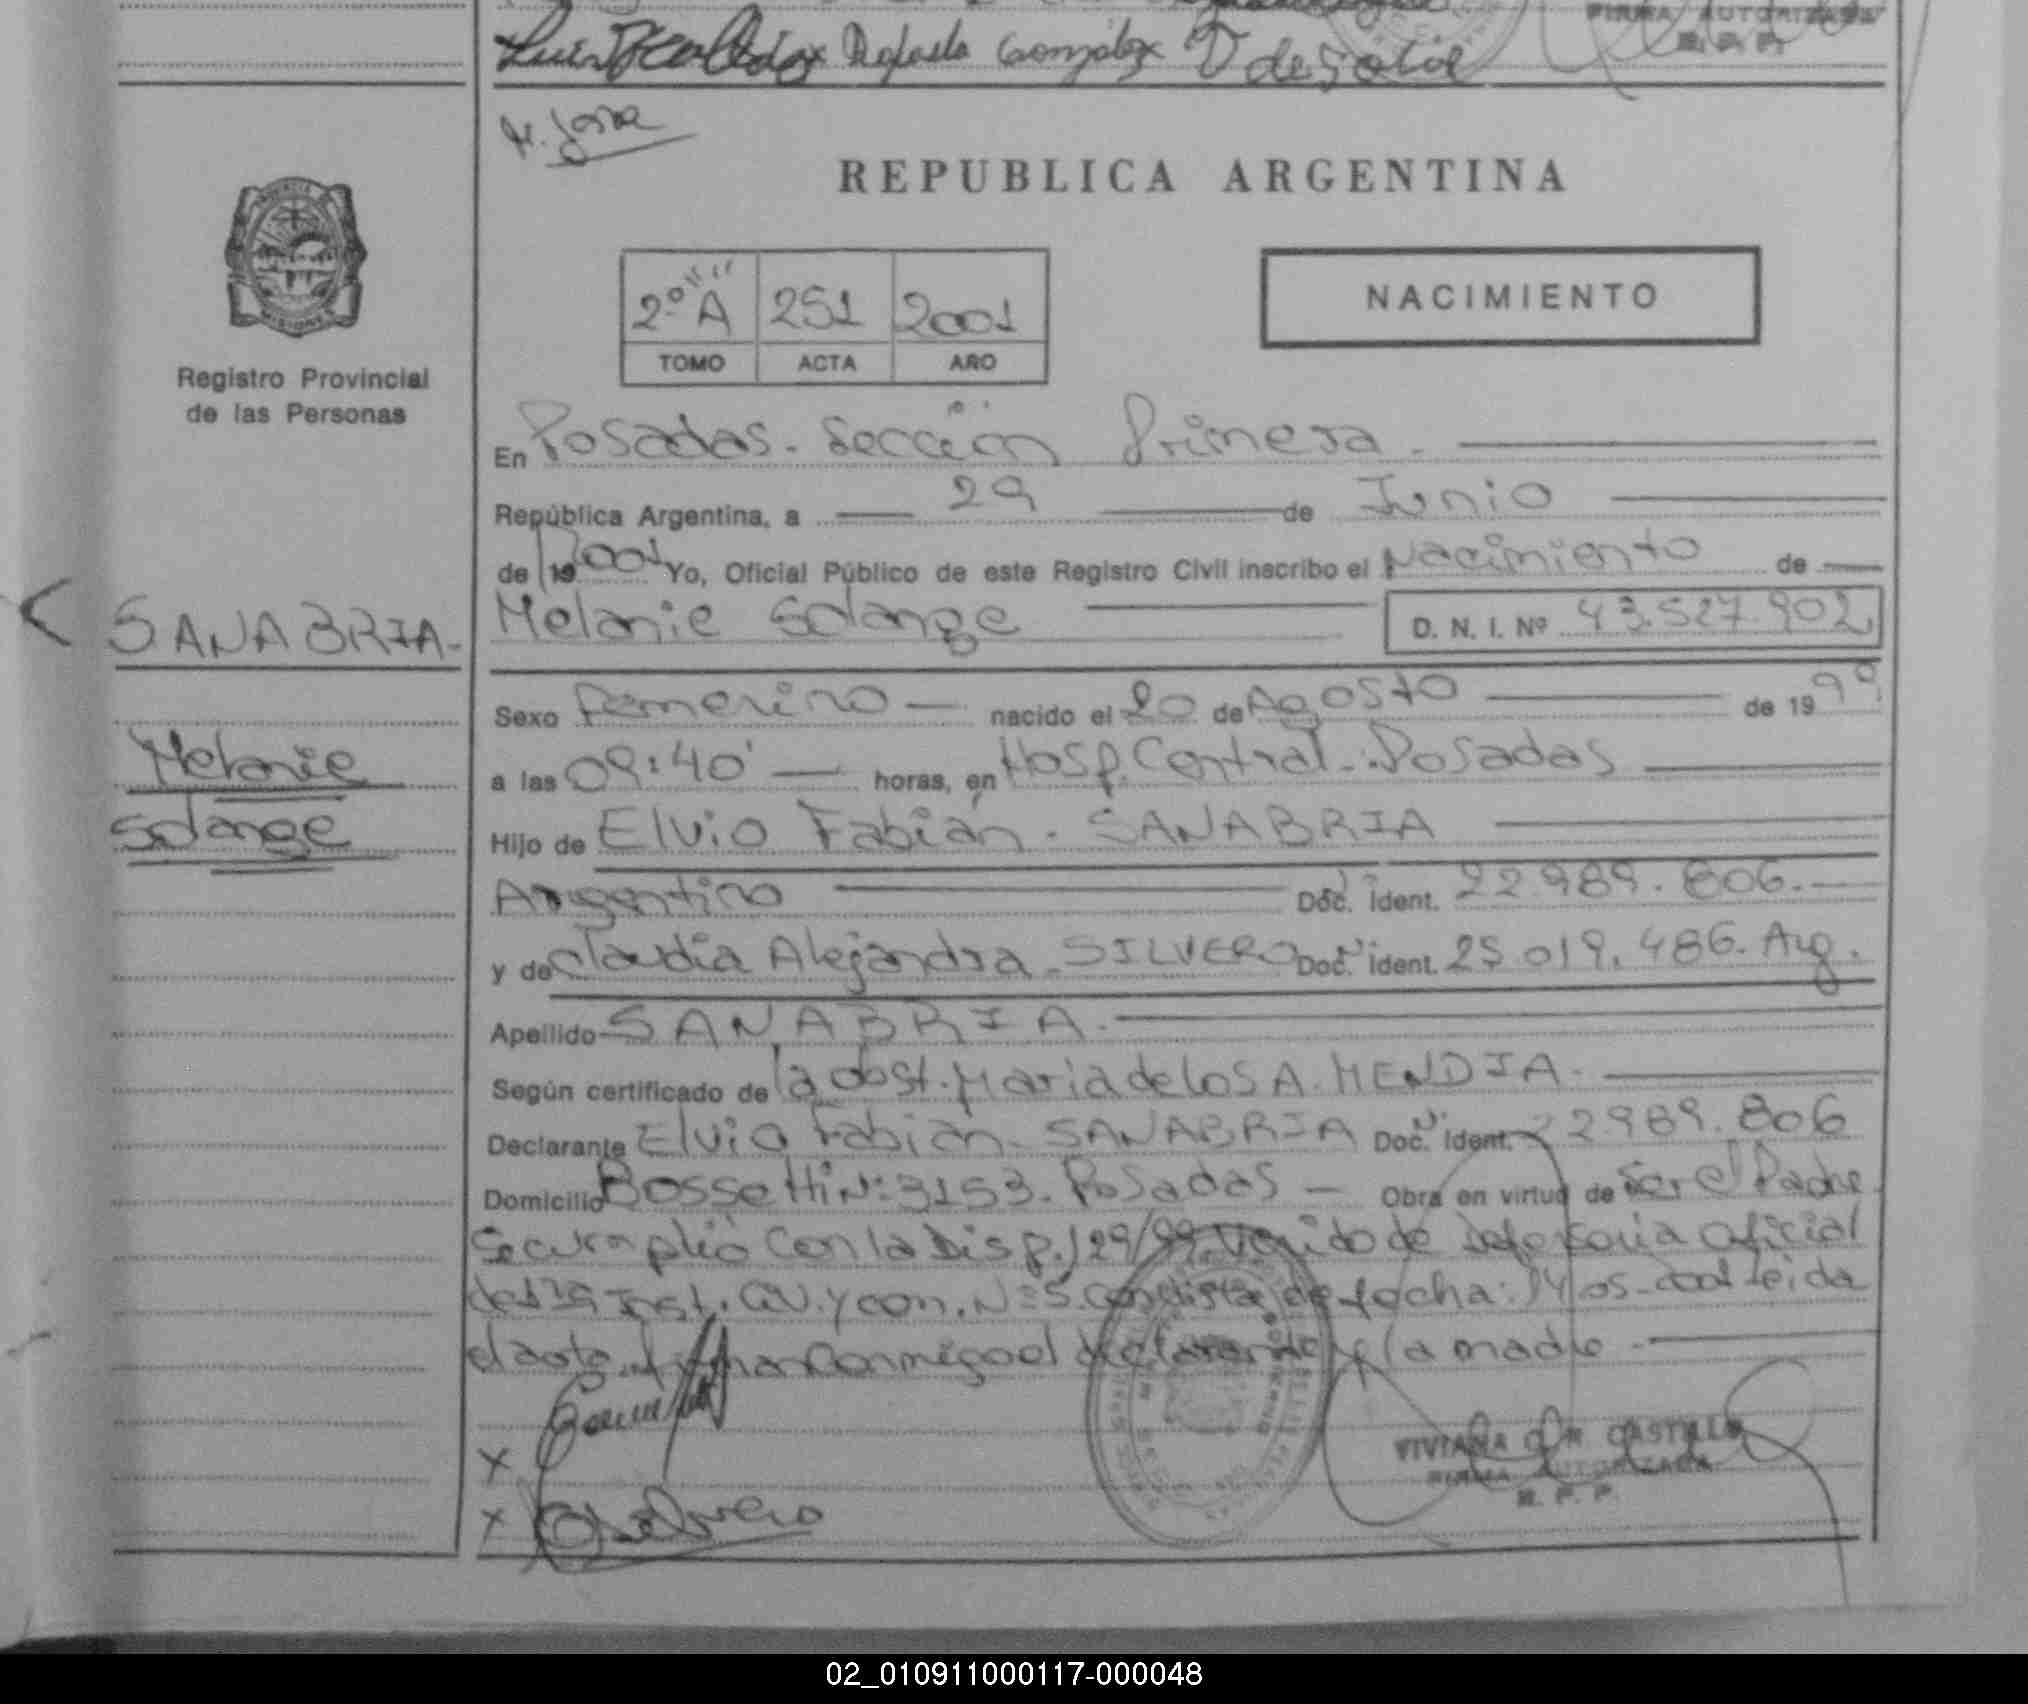 Rafaela González V de Sotel
FIRMA AUTORIZADA
R. P. P.
REPUBLICA ARGENTINA
MISIONES
Registro Provincial
de las Personas
2º A 251 2001
TOMO ACTA AÑO
NACIMIENTO
En Posadas. Sección Primera.
República Argentina, a 29 de Junio
de 19 2001 Yo, Oficial Público de este Registro Civil inscribo el Nacimiento de
SANABRIA.
Melanie Solange
D. N. I. Nº 43.527.902
Sexo Femenino nacido el 20 de Agosto de 1999
Melanie
Solange
a las 09:40' horas, en Hosp. Central. Posadas
Hijo de Elvio Fabián. SANABRIA
Argentino Doc. Ident. 22.989.806.
y de Claudia Alejandra. SILVERO Doc. Ident. 25.019.486. Arg.
Apellido SANABRIA.
Según certificado de la obst. Maria de los A. MENDIA.
Declarante Elvio Fabián. SANABRIA Doc. Ident. 22989.806
Domicilio Bossetti Nº: 3153. Posadas Obra en virtud de ser el Padre
Se cumplió con la Disp. 129/99 Venido de Defensoria oficial
Inst. Civ. y com. Nº 5. de fecha: 14/05 Leida
el acta. firman conmigo el declarante y la madre
X
VIVIANA CASTILLO
FIRMA AUTORIZADA
R. P. P.
X
02_010911000117-000048